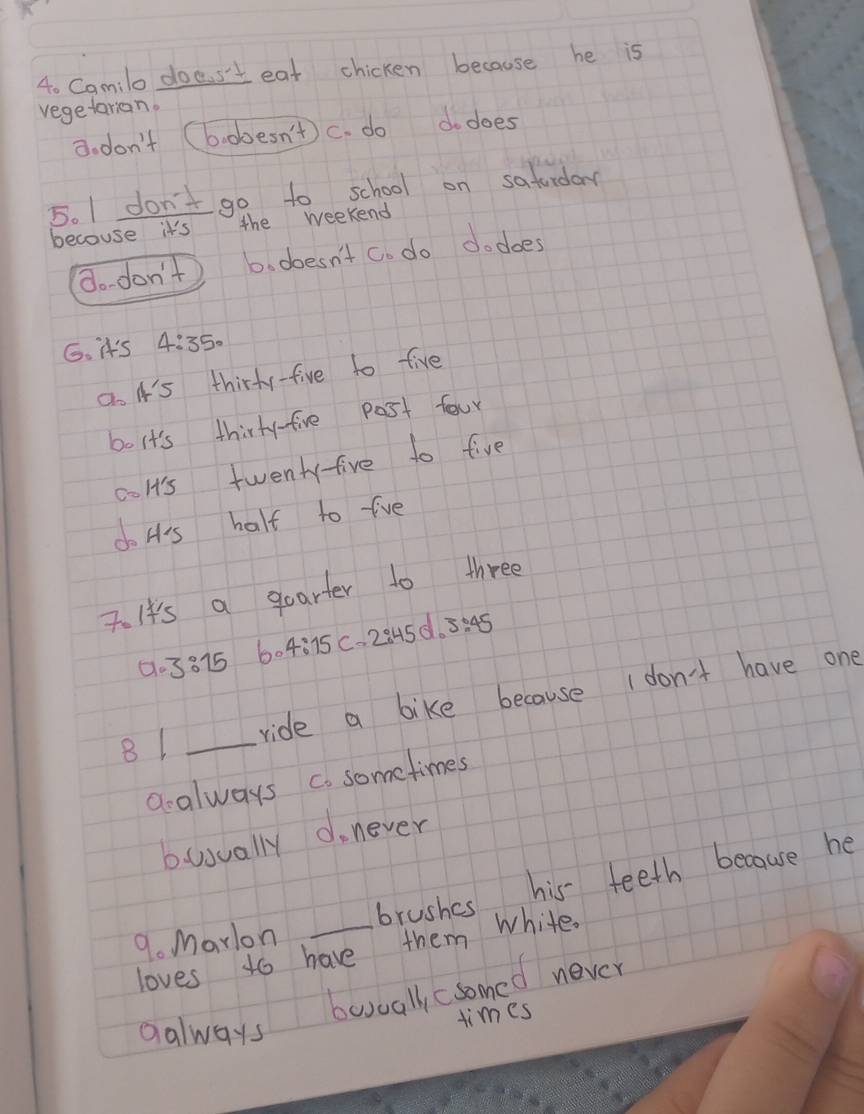 4. Camilo does't eat chicken because he is
vegetarian.
a. don't b. doesn't c. do d. does
5. I don't go to school on saturday
becouse it's the weekend
a. don't b. doesn't c. do d. does
6. it's 4:35.
a. It's thirty-five to five
b. It's thirty-five past four
c. It's twenty-five to five
d. It's half to five
7. It's a quarter to three
a. 3:15 b. 4:15 c. 2:45 d. 3:45
8 I ___ ride a bike because I don't have one
a. always c. sometimes
b. usually d. never
9. Marlon ___ brushes his teeth because he
loves to have them white.
a always b usually c some d never
times